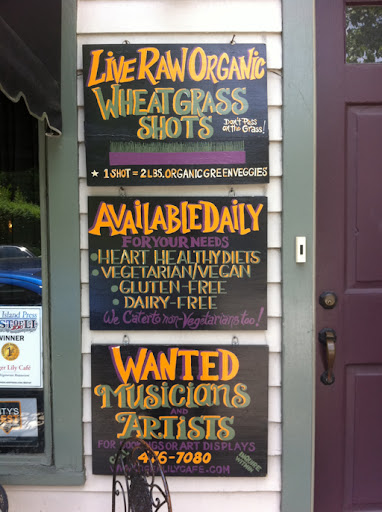 LIVE RAW ORGANIC
WHEATGRASS
SHOTS
Don't Pass
on the Grass!
★ 1 SHOT = 2 LBS. ORGANIC GREEN VEGGIES
AVAILABLE DAILY
FOR YOUR NEEDS
• HEART HEALTHY DIETS
• VEGETARIAN/VEGAN
• GLUTEN-FREE
• DAIRY-FREE
We Cater to non-Vegetarians too!
WANTED
MUSICIANS
AND
ARTISTS
FOR BOOKINGS OR ART DISPLAYS
476-7080
Island Press
WINNER
Lily Café